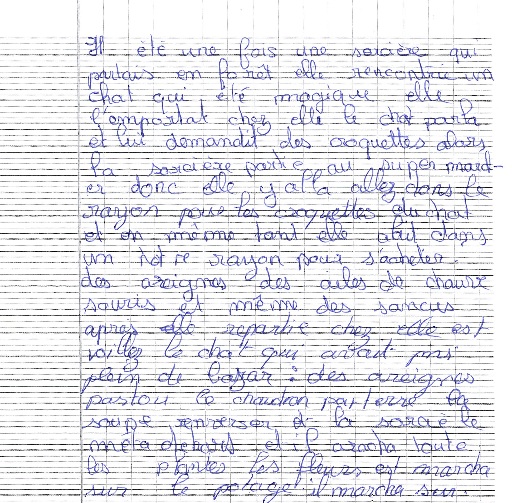 Il été une fois une sorcière qui
partais en forêt elle rencontrie un
chat qui été magique elle
l'emportat chez elle le chat parla
et lui demandit des croquettes alors
la sorcière partie au super march-
er donc elle y alla allez dans le
rayon pour les croquettes du chat
et en même tant elle alut dans
un notre rayon pour s'acheter
des areignes des ailes de chauve
souris et même des
après elle repartie chez elle est
voillez le chat qui avait mis
plein de bazar : des areignes
pastou le chaudron par terre la
soupe renverser et la sorcie le
méta dehors et il aracha toute
les plantes les fleurs est marcha
sur le potage il marcha sur